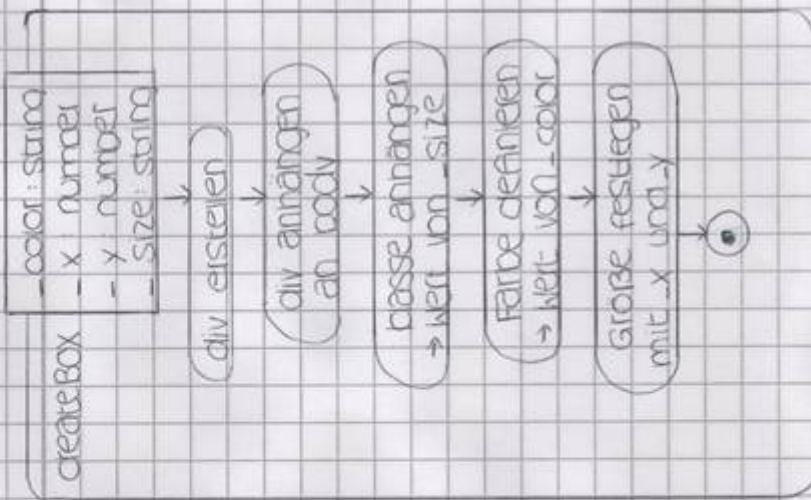 createBox
_color: string
_x: number
_y: number
_size: string
div erstellen
div anhängen
an body
basse anhängen
→ Wert von _size
Farbe definieren
→ Wert von _color
Größe festlegen
mit _x und _y